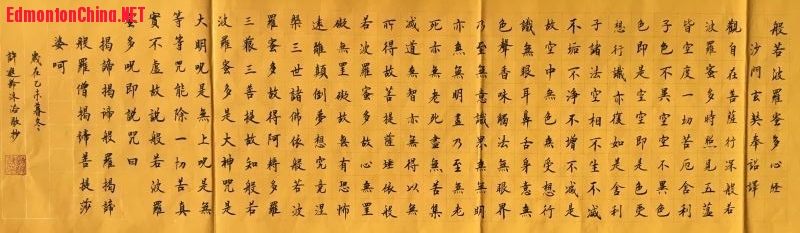 EdmontonChina.NET
般若波羅蜜多心经
沙門玄奘奉詔譯
觀自在菩薩行深般若
波羅蜜多時照見五蕴
皆空度一切苦厄舍利
子色不異空空不異色
色即是空空即是色受
想行識亦復如是舍利
子諸法空相不生不滅
不垢不淨不增不減是
故空中無色無受想行
識無眼耳鼻舌身意無
色聲香味觸法無眼界
乃至無意識界無無明
亦無無明盡乃至無老
死亦無老死盡無苦集
滅道無智亦無得以無
所得故菩提薩埵依般
若波羅蜜多故心無罣
礙無罣礙故無有恐怖
遠離顛倒夢想究竟涅
槃三世諸佛依般若波
羅蜜多故得阿耨多羅
三藐三菩提故知般若
波羅蜜多是大神咒是
大明呪是無上呪是無
等等咒能除一切苦真
實不虛故說般若波羅
蜜多呪即說咒曰
揭諦揭諦般羅揭諦
般羅僧揭諦菩提莎
婆呵
歲在乙未暮冬
許沐浴敬抄